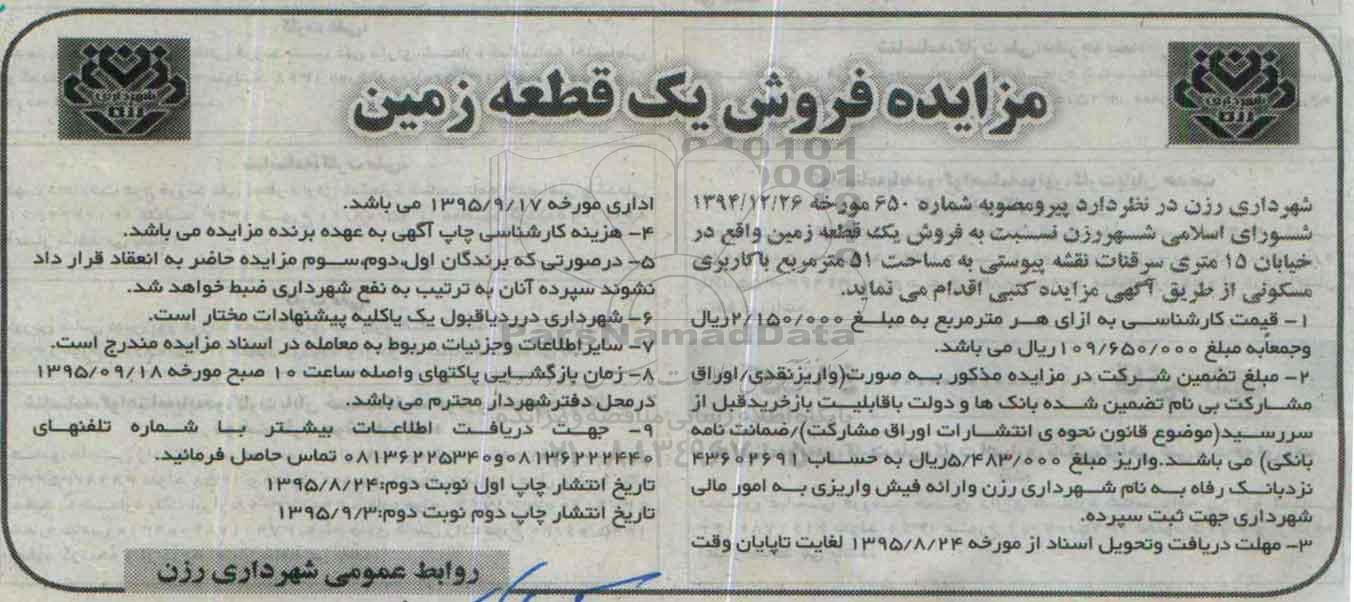 مزایده فروش یک قطعه زمین
شهرداری رزن
شهرداری رزن
شهرداری رزن در نظردارد پیرومصوبه شماره ۶۵۰ مورخه ۱۳۹۴/۱۲/۲۶
شورای اسلامی شهررزن نسبت به فروش یک قطعه زمین واقع در
خیابان ۱۵ متری سرقنات نقشه پیوستی به مساحت ۵۱ مترمربع باکاربری
مسکونی از طریق آگهی مزایده کتبی اقدام می نماید.
۱- قیمت کارشناسی به ازای هر مترمربع به مبلغ ۲/۱۵۰/۰۰۰ریال
وجمعابه مبلغ ۱۰۹/۶۵۰/۰۰۰ریال می باشد.
۲- مبلغ تضمین شرکت در مزایده مذکور به صورت(واریزنقدی/اوراق
مشارکت بی نام تضمین شده بانک ها و دولت باقابلیت بازخریدقبل از
سررسید(موضوع قانون نحوه ی انتشارات اوراق مشارکت)/ضمانت نامه
بانکی) می باشد.واریز مبلغ ۵/۴۸۳/۰۰۰ریال به حساب ۴۳۶۰۲۶۹۱
نزدبانک رفاه به نام شهرداری رزن وارائه فیش واریزی به امور مالی
شهرداری جهت ثبت سپرده.
۳- مهلت دریافت وتحویل اسناد از مورخه ۱۳۹۵/۸/۲۴ لغایت تاپایان وقت
اداری مورخه ۱۳۹۵/۹/۱۷ می باشد.
۴- هزینه کارشناسی چاپ آگهی به عهده برنده مزایده می باشد.
۵- درصورتی که برندگان اول،دوم،سوم مزایده حاضر به انعقاد قرار داد
نشوند سپرده آنان به ترتیب به نفع شهرداری ضبط خواهد شد.
۶- شهرداری درردیاقبول یک یاکلیه پیشنهادات مختار است.
۷- سایراطلاعات وجزئیات مربوط به معامله در اسناد مزایده مندرج است.
۸- زمان بازگشایی پاکتهای واصله ساعت ۱۰ صبح مورخه ۱۳۹۵/۰۹/۱۸
درمحل دفترشهردار محترم می باشد.
۹- جهت دریافت اطلاعات بیشتر با شماره تلفنهای
۰۸۱۳۶۲۲۲۴۴۰و۰۸۱۳۶۲۲۵۳۴۰ تماس حاصل فرمائید.
تاریخ انتشار چاپ اول نوبت دوم:۱۳۹۵/۸/۲۴
تاریخ انتشار چاپ دوم نوبت دوم:۱۳۹۵/۹/۳
روابط عمومی شهرداری رزن
ParsNamadData